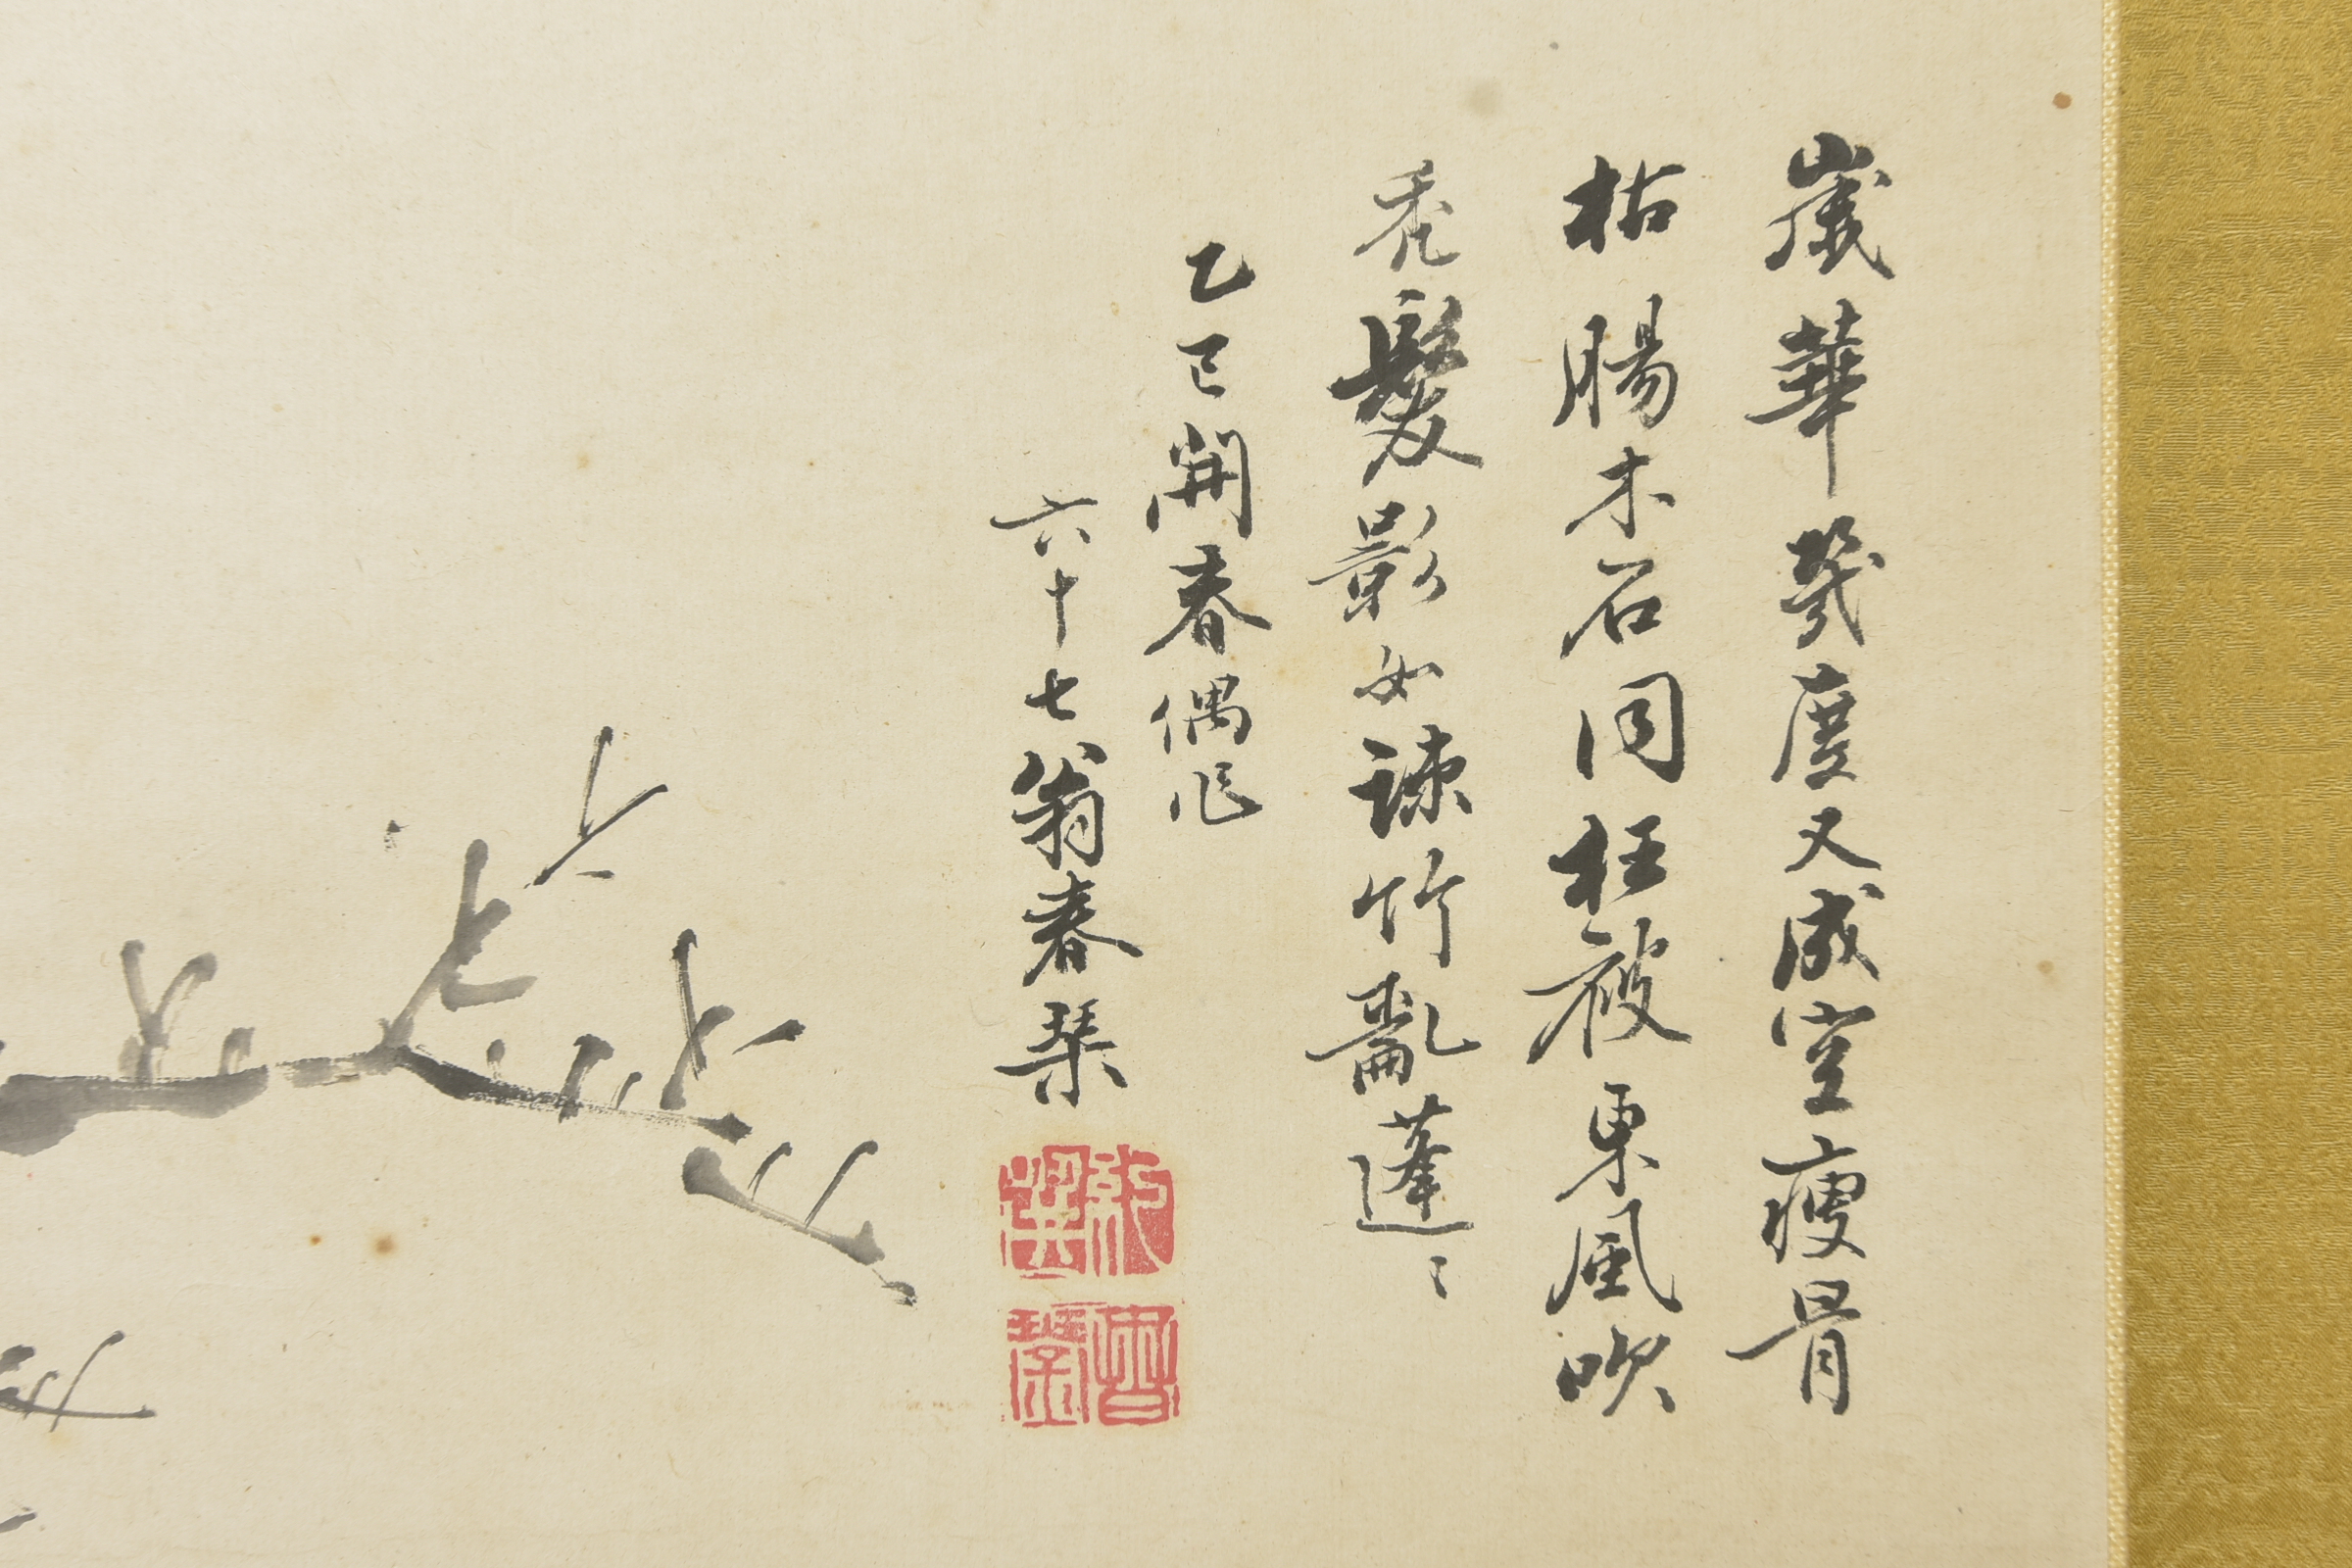 歳華幾度又成空瘦骨
枯腸木石同枉被東風吹
禿髮影如疎竹亂蓬〻
乙巳開春偶作
六十七翁春琴